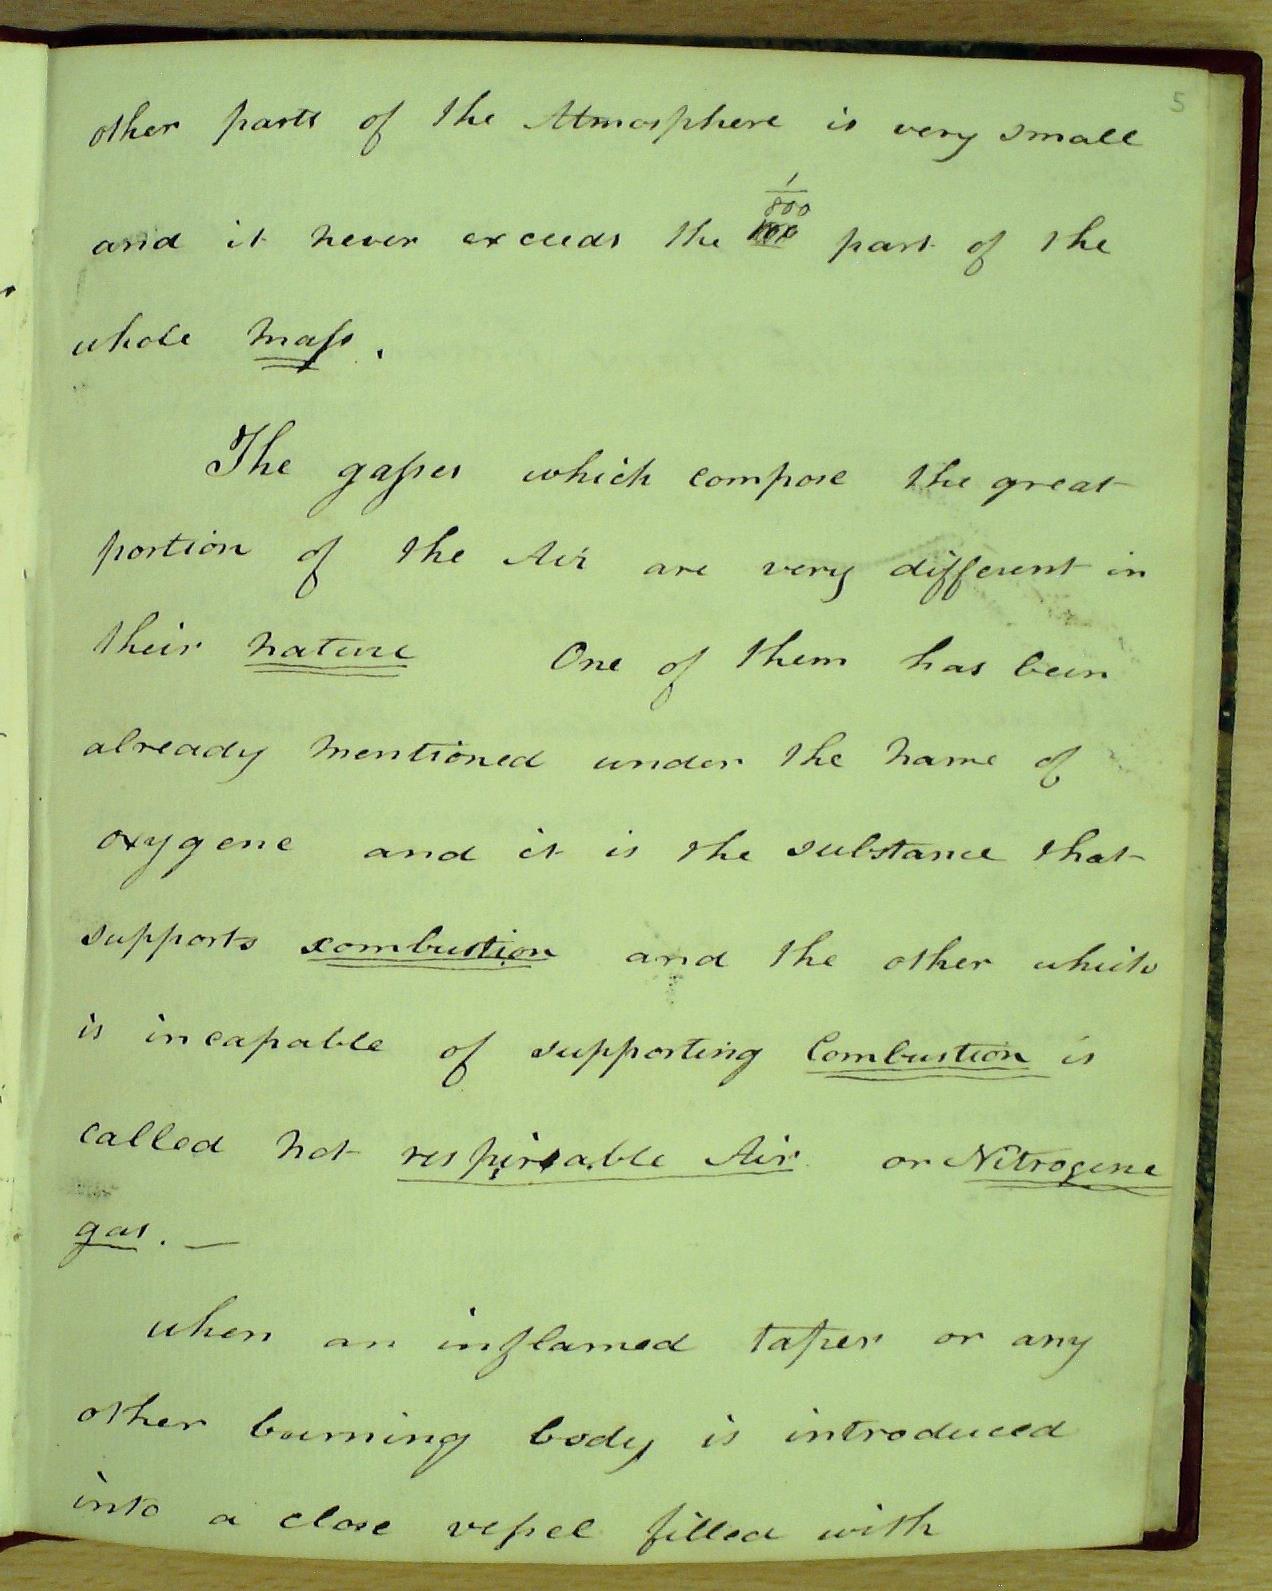 5
other parts of the Atmosphere is very small
and it never exceeds the 1/800 part of the
whole mass.
The gasses which compose the great
portion of the Air are very different in
their nature One of them has been
already mentioned under the name of
oxygene and it is the substance that
supports combustion and the other which
is incapable of supporting Combustion is
called not respirable Air or Nitrogene
gas. —
when an inflamed taper or any
other burning body is introduced
into a close vessel filled with